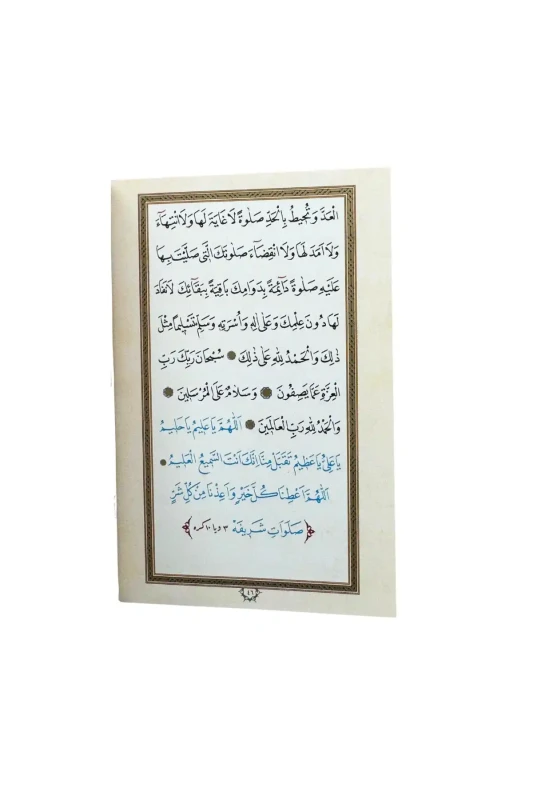 الْعَدَّ وَتُحِيطُ بِالْحَدِّ صَلٰوةً لَا غَايَةَ لَهَا وَلَا انْتِهَاءَ
وَلَا اَمَدَ لَهَا وَلَا انْقِضَاءَ صَلٰوتَكَ الَّتِى صَلَّيْتَ بِهَا
عَلَيْهِ صَلٰوةً دَائِمَةً بِدَوَامِكَ بَاقِيَةً بِبَقَائِكَ لَا نَفَادَ
لَهَا دُونَ عِلْمِكَ وَعَلٰى اٰلِهِ وَاُسْرَتِهِ وَسَلِّمْ تَسْلِيمًا مِثْلَ
ذٰلِكَ وَالْحَمْدُ لِلّٰهِ عَلٰى ذٰلِكَ ۞ سُبْحَانَ رَبِّكَ رَبِّ
الْعِزَّةِ عَمَّا يَصِفُونَ ۞ وَسَلَامٌ عَلَى الْمُرْسَلِينَ ۞
وَالْحَمْدُ لِلّٰهِ رَبِّ الْعَالَمِينَ ۞ اَللّٰهُمَّ يَا عَلِيمُ يَا حَلِيمُ
يَا عَلِىُّ يَا عَظِيمُ تَقَبَّلْ مِنَّا اِنَّكَ اَنْتَ السَّمِيعُ الْعَلِيمُ ۞
اَللّٰهُمَّ اَعْطِنَا كُلَّ خَيْرٍ وَاَعِذْنَا مِنْ كُلِّ شَرٍّ
صَلَوَاتِ شَرِيفَهْ ٣ ويا ١٠ كره
٤٦